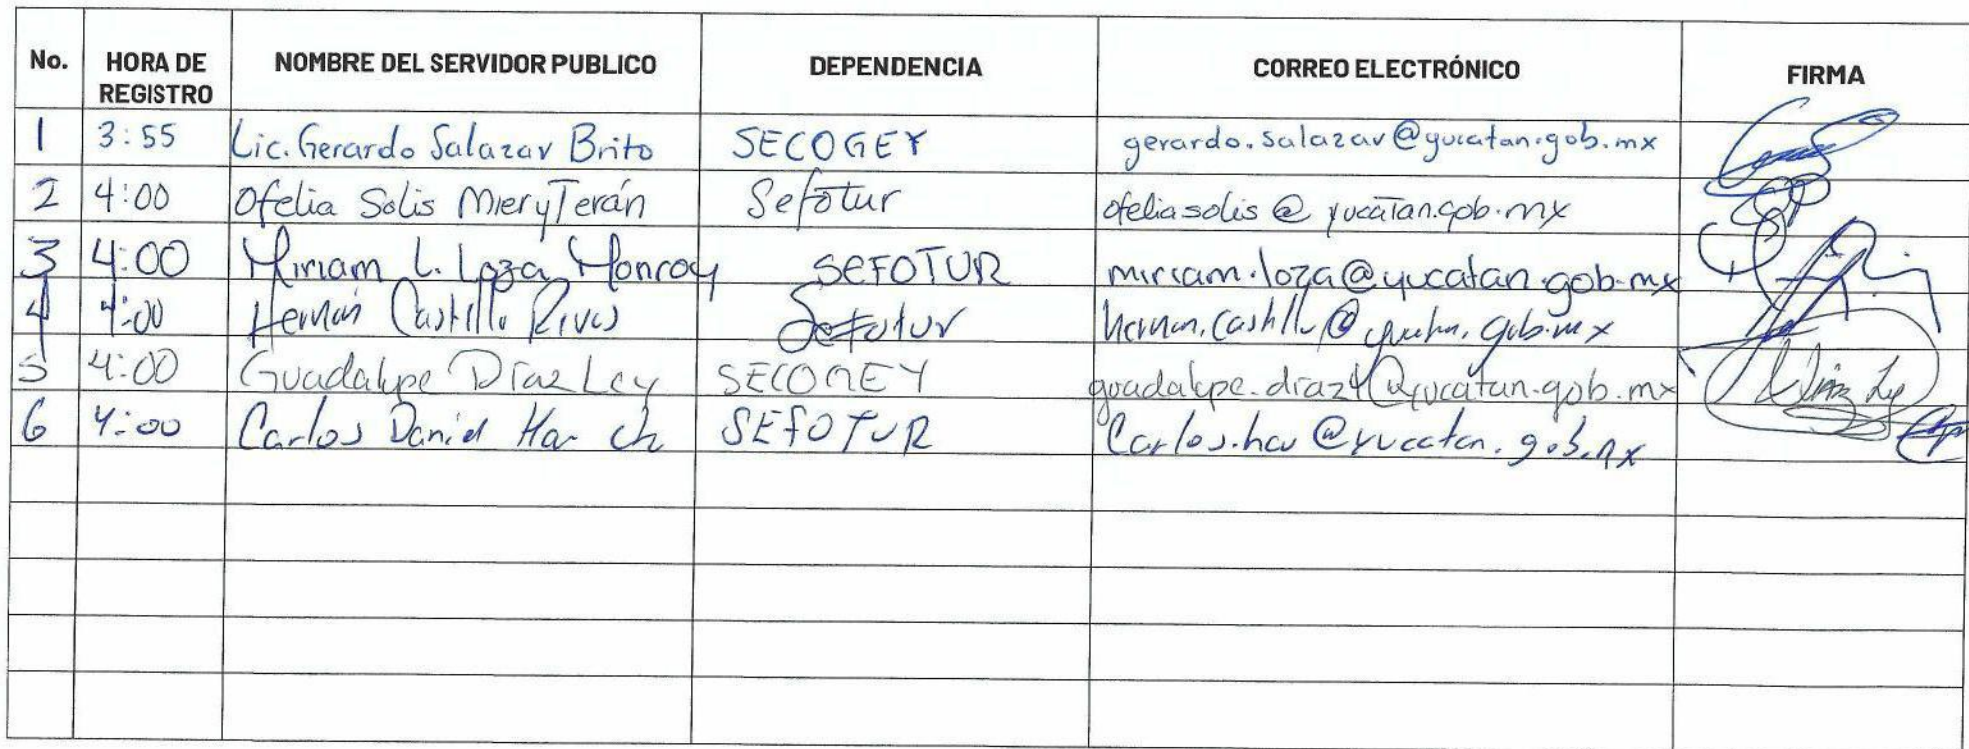 No. HORA DE REGISTRO NOMBRE DEL SERVIDOR PUBLICO DEPENDENCIA CORREO ELECTRÓNICO FIRMA
1 3:55 Lic. Gerardo Salazar Brito SECOGEY gerardo.salazar@yucatan.gob.mx
2 4:00 Ofelia Solis Mier y Terán Sefotur ofeliasolis@yucatan.gob.mx
3 4:00 Miriam L. Loza Monroy SEFOTUR miriam.loza@yucatan.gob.mx
4 4:00 Hernán Castillo Rivas Sefotur hernan.castillo@yucatan.gob.mx
5 4:00 Guadalupe Díaz Ley SECOGEY guadalupe.diaz4@yucatan.gob.mx Díaz Ley
6 4:00 Carlos Daniel SEFOTUR @yucatan.gob.mx